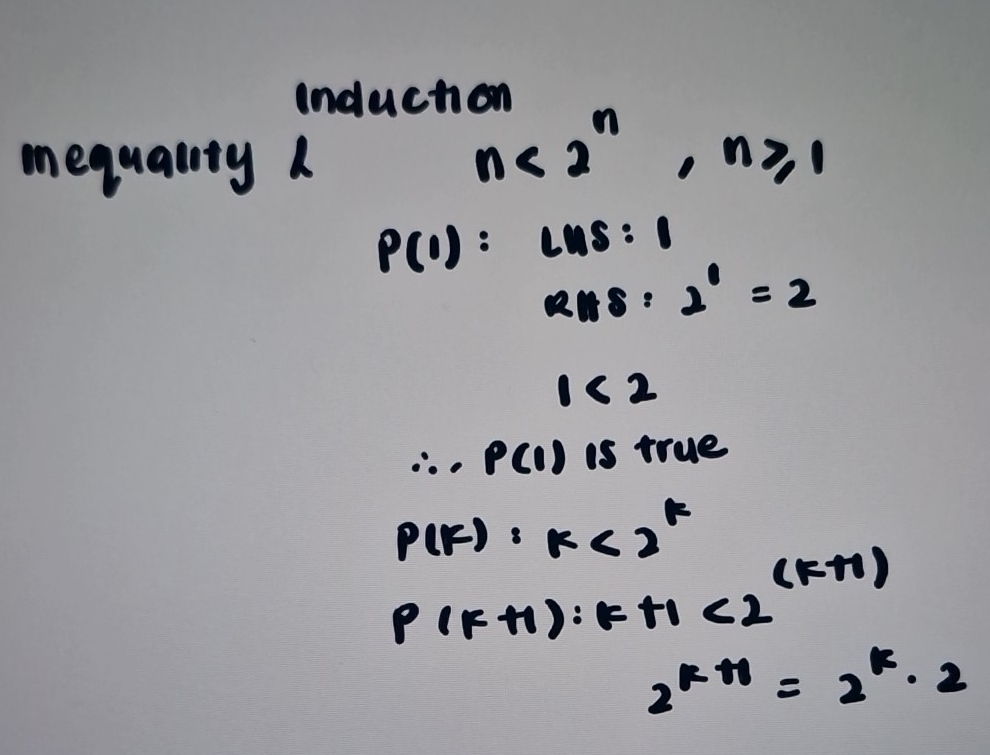 Induction
Inequality & n < 2ⁿ , n ⩾ 1
P(1) : LHS : 1
RHS : 2¹ = 2
1 < 2
∴, P(1) is true
P(k) : k < 2ᵏ
P(k+1) : k+1 < 2⁽ᵏ⁺¹⁾
2ᵏ⁺¹ = 2ᵏ · 2